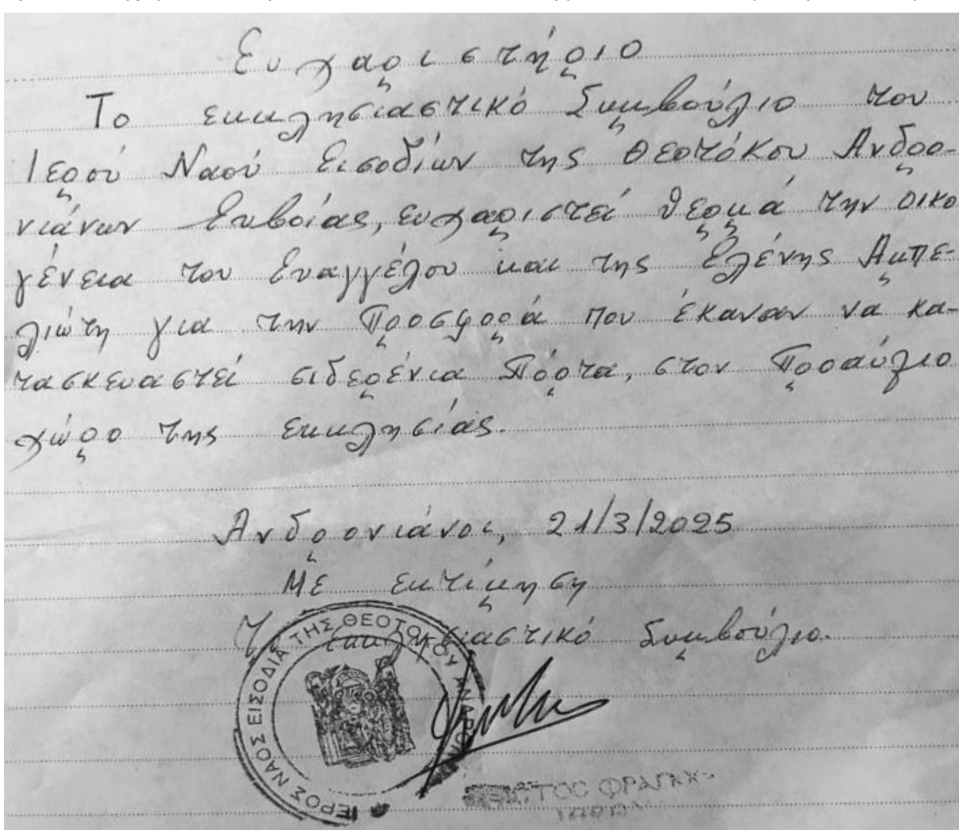 Ευχαριστήριο
Το εκκλησιαστικό Συμβούλιο του
Ιερού Ναού Εισοδίων της Θεοτόκου Ανδρο-
νιάνων Ευβοίας, ευχαριστεί θερμά την οικο
γένεια του Ευαγγέλου και της Ελένης Αμπε-
λιώτη για την Προσφορά που έκαναν να κα-
τασκευαστεί σιδερένια Πόρτα, στον Προαύλιο
χώρο της Εκκλησίας.
Ανδρονιάνοι, 21/3/2025
Με εκτίμηση
Το εκκλησιαστικό Συμβούλιο.
ΙΕΡΟΣ ΝΑΟΣ ΕΙΣΟΔΙΑ ΤΗΣ ΘΕΟΤΟΚΟΥ